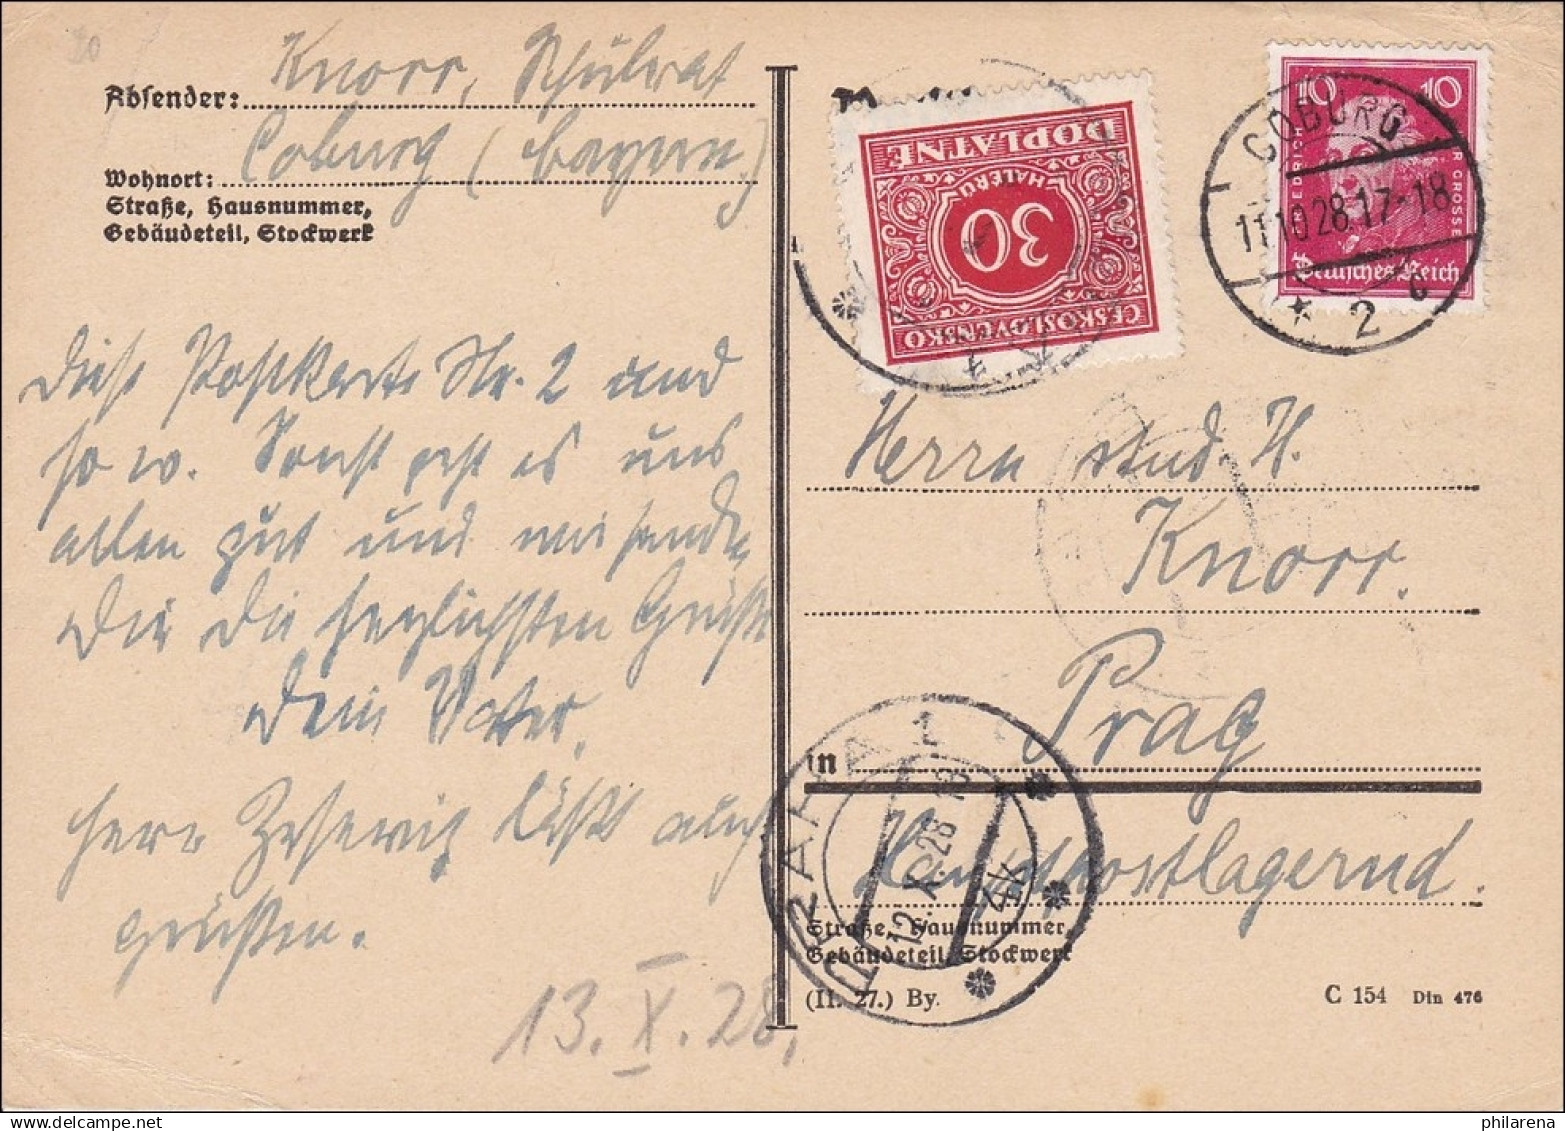 Absender: Knorr, Schulrat
Coburg (Bayern)
Wohnort:
Straße, Hausnummer,
Gebäudeteil, Stockwerk
Diese Postkarte Nr. 2 und
so w. Sonst geht es uns
allen gut und wir senden
Dir die herzlichsten Grüße
Dein Vater.
Herr läßt auch
grüßen.
13. X. 28.
DOPLATNÉ
HALÉŘŮ
30
ČESKOSLOVENSKO
10 10
FRIEDRICH DER GROSSE
Deutsches Reich
COBURG
11.10.28.17-18
* 2 c
Herrn stud. H.
Knorr.
in Prag
Hauptpostlagernd.
Straße, Hausnummer,
Gebäudeteil, Stockwerk
PRAHA 1
12.X.28
(II. 27.) By.
C 154 Din 476
philarena.com